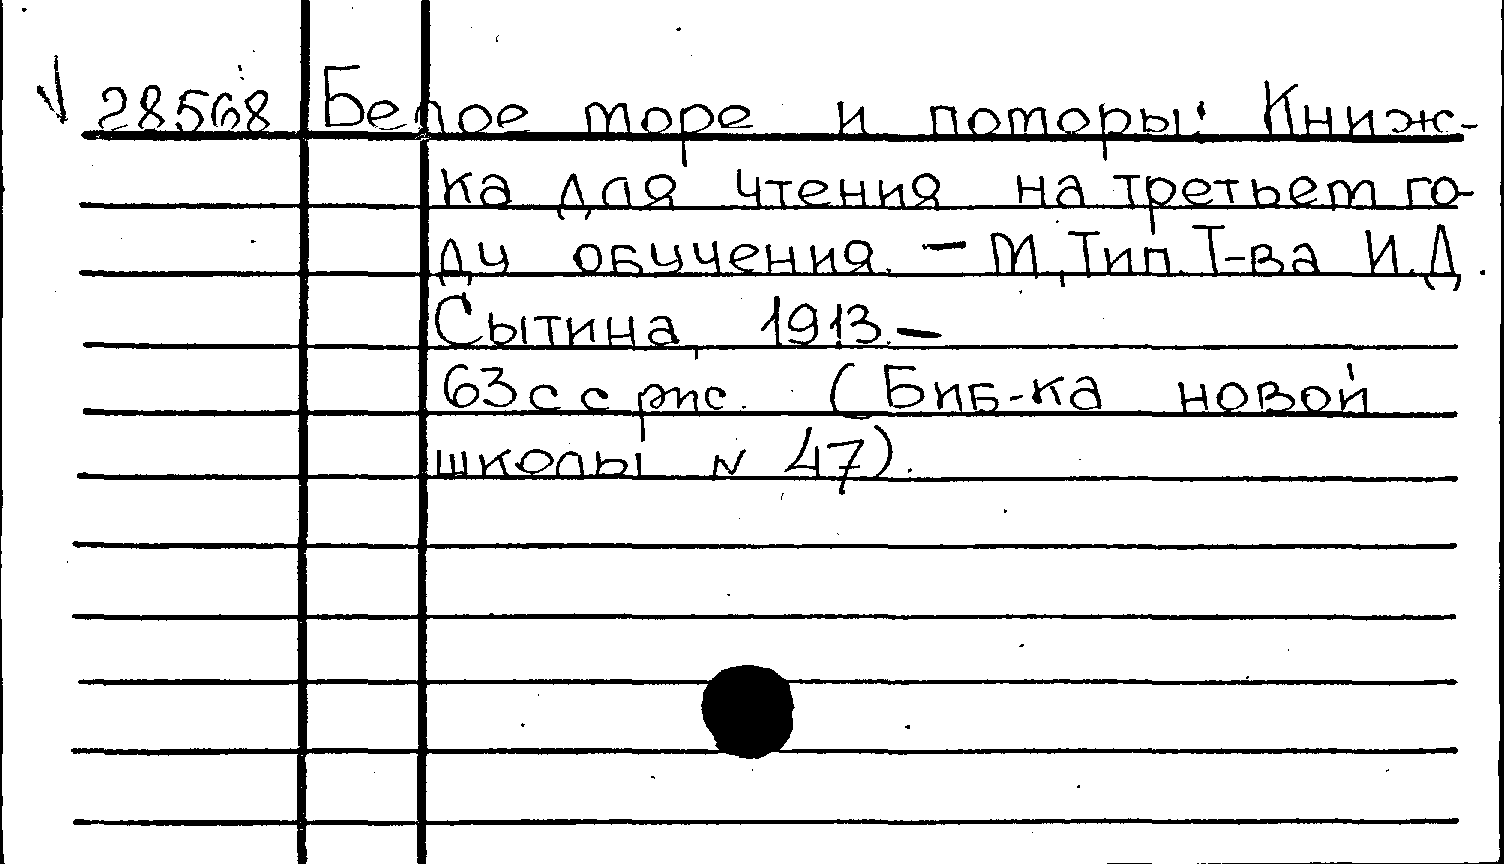 √ 28568 Белое море и поморы: Книж-
ка для чтения на третьем го-
ду обучения. - М, Тип. Т-ва И.Д.
Сытина, 1913.-
63с с рис. (Биб-ка новой
школы N 47).